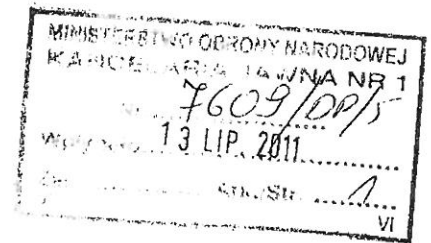 MINISTERSTWO OBRONY NARODOWEJ
KANCELARIA JAWNA NR 1
7609/DP/5
13 LIP. 2011
Ark./Str. 1
VI